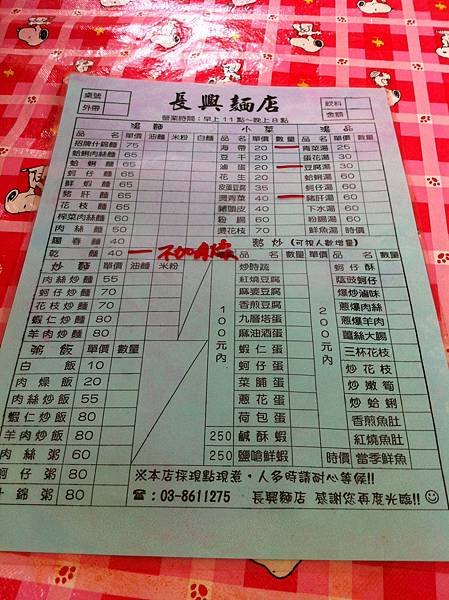 桌號
外帶
長興麵店
營業時間：早上11點~晚上8點
飲料
金額
湯麵
品名 單價 油麵 米粉 白麵
招牌什錦麵 75
蛤蜊肉絲麵 65
蛤蜊麵 65
蚵仔麵 65
鮮蝦麵 65
豬肝麵 65
花枝麵 65
榨菜肉絲麵 60
肉絲麵 50
陽春麵 40
乾麵 40 不加
炒麵 單價 油麵 米粉
肉絲炒麵 55
蚵仔炒麵 70
花枝炒麵 70
蝦仁炒麵 80
羊肉炒麵 80
粥飯 單價 數量
白飯 10
肉燥飯 20
肉絲炒飯 55
蝦仁炒飯 80
羊肉炒飯 80
肉絲粥 60
蚵仔粥 60
什錦粥 80
小菜
品名 單價 數量
海帶 20
豆干 20
滷蛋 20
花 20
皮蛋豆腐 35
燙青菜 40
豬頭皮 40
粉腸 60
燙花枝 70
湯品
品名 單價 數量
青菜湯 25
蛋花湯 30
豆腐湯 30
蛤蜊湯 60
蚵仔湯 60
豬肝湯 60
下水湯 60
粉腸湯 60
鮮魚湯 時價
熱炒(可視人數增量)
100元內
炒時蔬
紅燒豆腐
麻婆豆腐
香煎豆腐
九層塔蛋
麻油酒蛋
蝦仁蛋
蚵仔蛋
菜脯蛋
蔥花蛋
荷包蛋
250 鹹酥蝦
250 鹽嗆鮮蝦
200元內
蚵仔酥
蔭豉蚵仔
爆炒滷味
蔥爆豬肉
蔥爆羊肉
薑絲大腸
三杯花枝
炒花枝
炒嫩筍
炒蛤蜊
香煎魚肚
紅燒魚肚
時價 當季鮮魚
※本店採現點現煮，人多時請耐心等候!!
☎：03-8611275 長興麵店 感謝您再度光臨!!